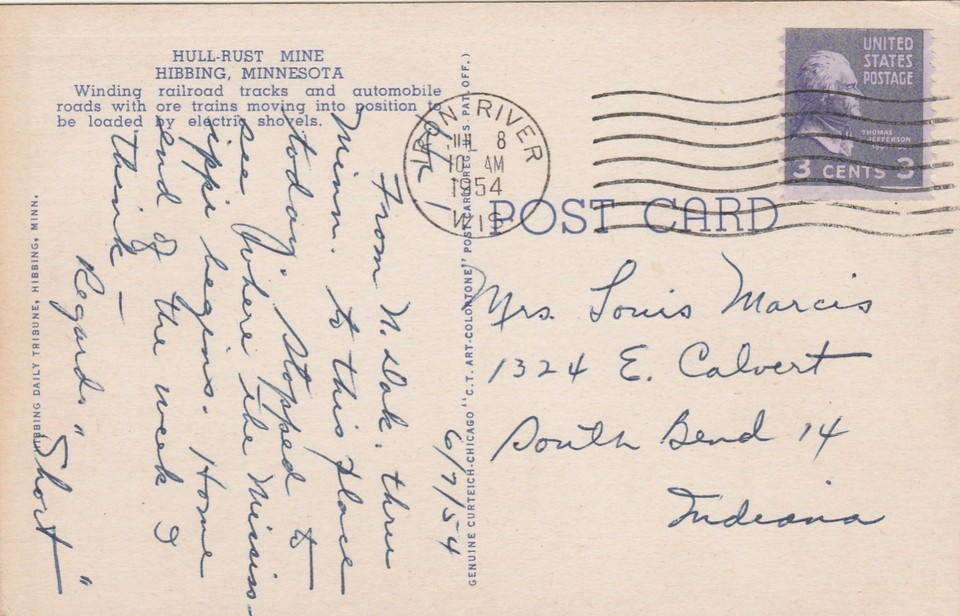 HULL-RUST MINE
HIBBING, MINNESOTA
Winding railroad tracks and automobile
roads with ore trains moving into position to
be loaded by electric shovels.
6/7/54
From N. Dak. thru
Minn. to this place
today. Stopped to
see where the Missis-
ippi begins. Home
end of the week I
think –
Regards
"Short"
HIBBING DAILY TRIBUNE, HIBBING, MINN.
GENUINE CURTEICH-CHICAGO "C.T. ART-COLORTONE" POST CARD (REG. U.S. PAT. OFF.)
IRON RIVER
JUL 8
10 AM
1954
WIS
UNITED
STATES
POSTAGE
THOMAS
JEFFERSON
3 CENTS 3
POST CARD
Mrs. Louis Marcis
1324 E. Calvert
South Bend 14
Indiana